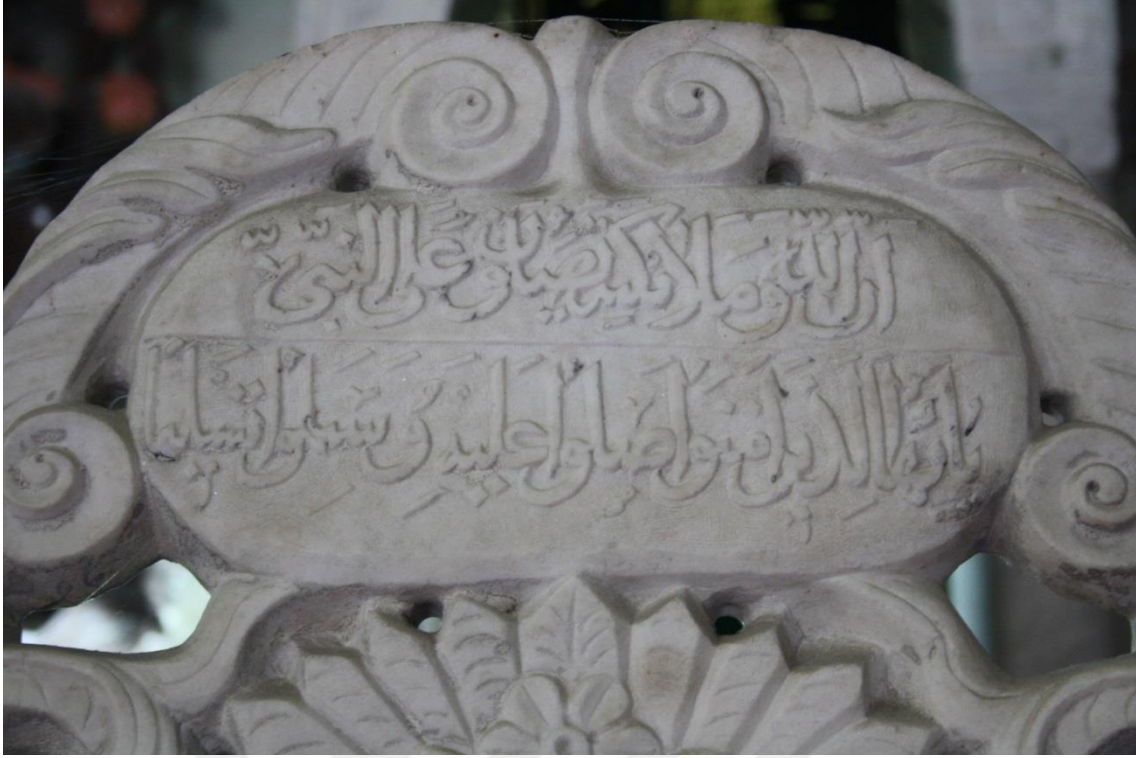 ان الله وملائكته يصلون على النبي
يا ايها الذين امنوا صلوا عليه وسلموا تسليما